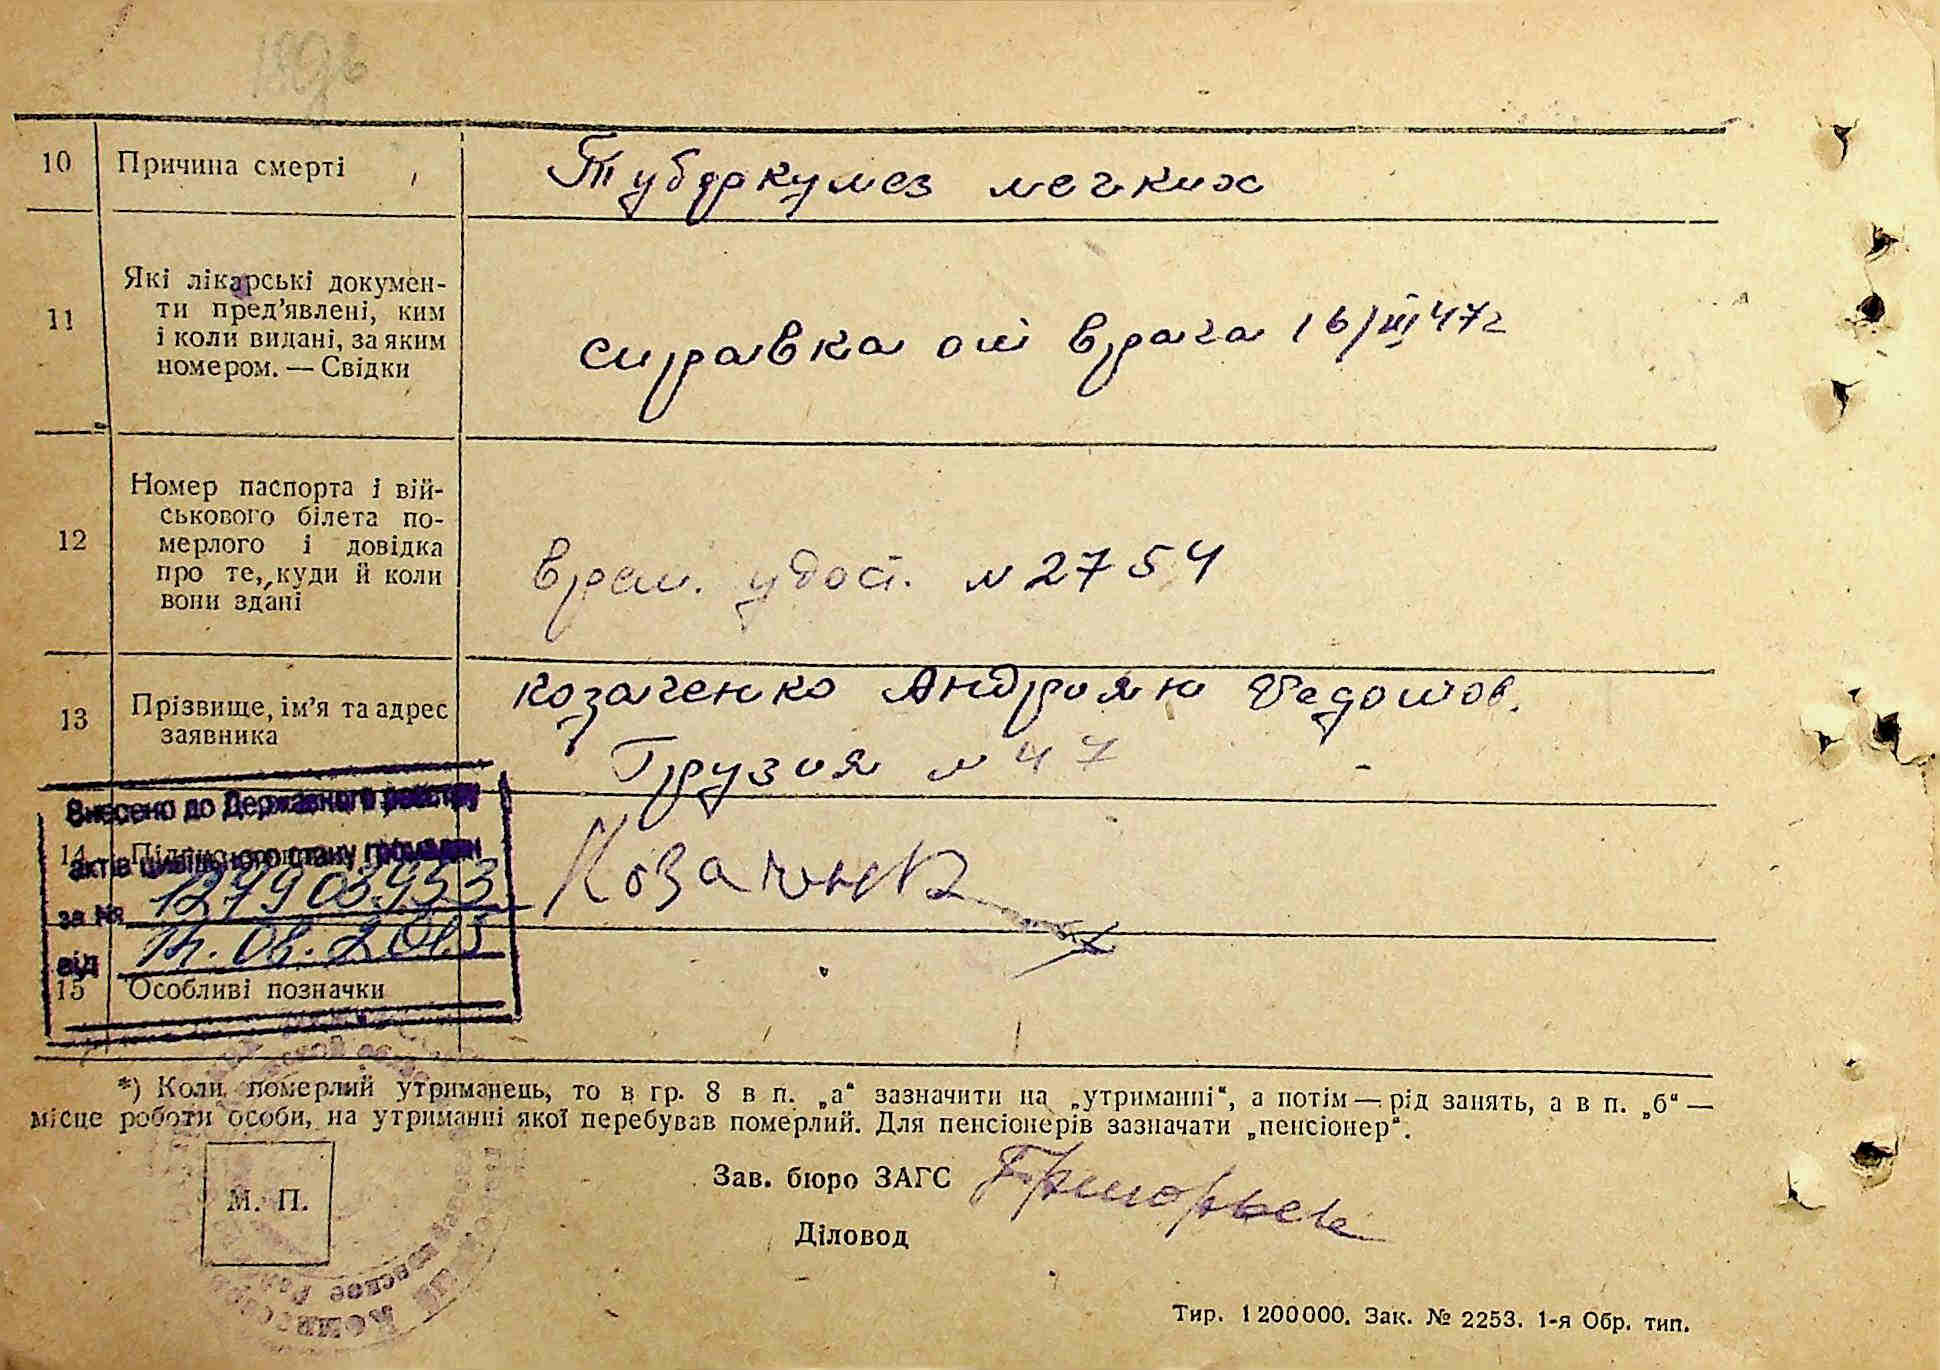 10 Причина смерті Туберкулез легких
11 Які лікарські докумен-
ти пред’явлені, ким
і коли видані, за яким
номером. — Свідки
справка от врача 16/III 47 г
12 Номер паспорта і вій-
ськового білета по-
мерлого і довідка
про те, куди й коли
вони здані
врем. удост. № 2754
13 Прізвище, ім’я та адрес
заявника
Козаченко Андриян Федотов.
Грузия № 47
Внесено до Державного реєстру
14
актів цивільного стану громадян
Козаченко
за №
від
15 Особливі позначки
*) Коли померлий утриманець, то в гр. 8 в п. „а“ зазначити на „утриманні“, а потім — рід занять, а в п. „б“ —
місце роботи особи, на утриманні якої перебував померлий. Для пенсіонерів зазначати „пенсіонер“.
М. П.
Зав. бюро ЗАГС
Діловод
Тир. 1200000. Зак. № 2253. 1-я Обр. тип.